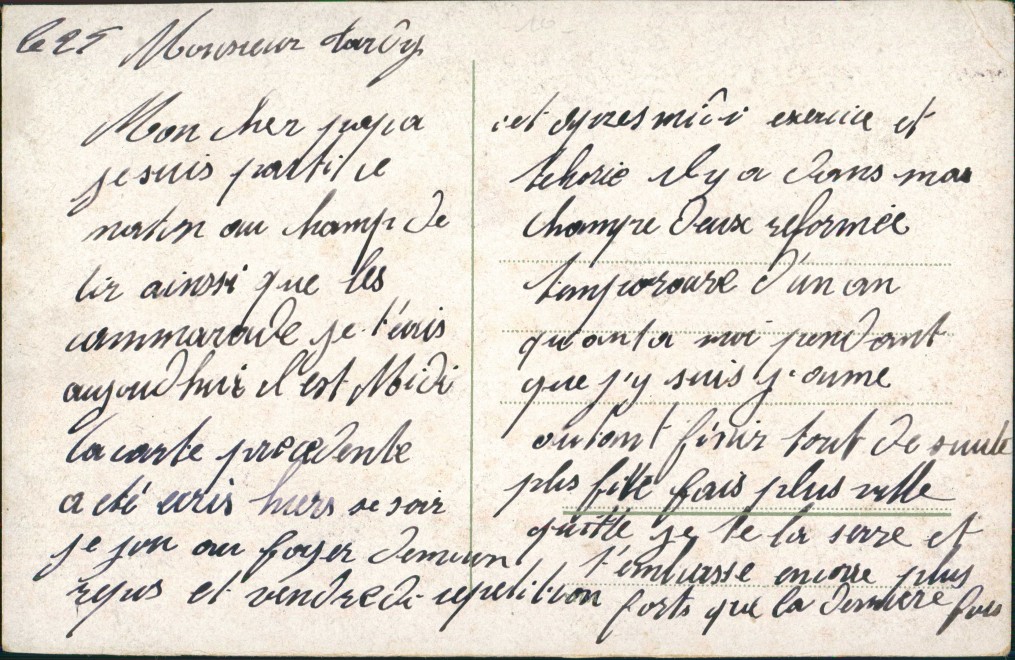 le 25 Monsieur Tardy
Mon cher papa
je suis partit ce
matin au champ de
tir ainsi que les
cammarade je t'écris
aujoud huir il est Midi
la carte précedente
a eté ecris hiers se soir
je jou au foyer demain
repos et vendredi repetition
et apres midi exercice et
tehorie il y a dans ma
chambre deux reformée
temporaire d'un an
quanta moi pendant
que j'y suis j'aime
autant finir tout de suite
plus fite fais plus vitte
quitte je te la serre et
t'embrasse encore plus
forts que la derniere fois